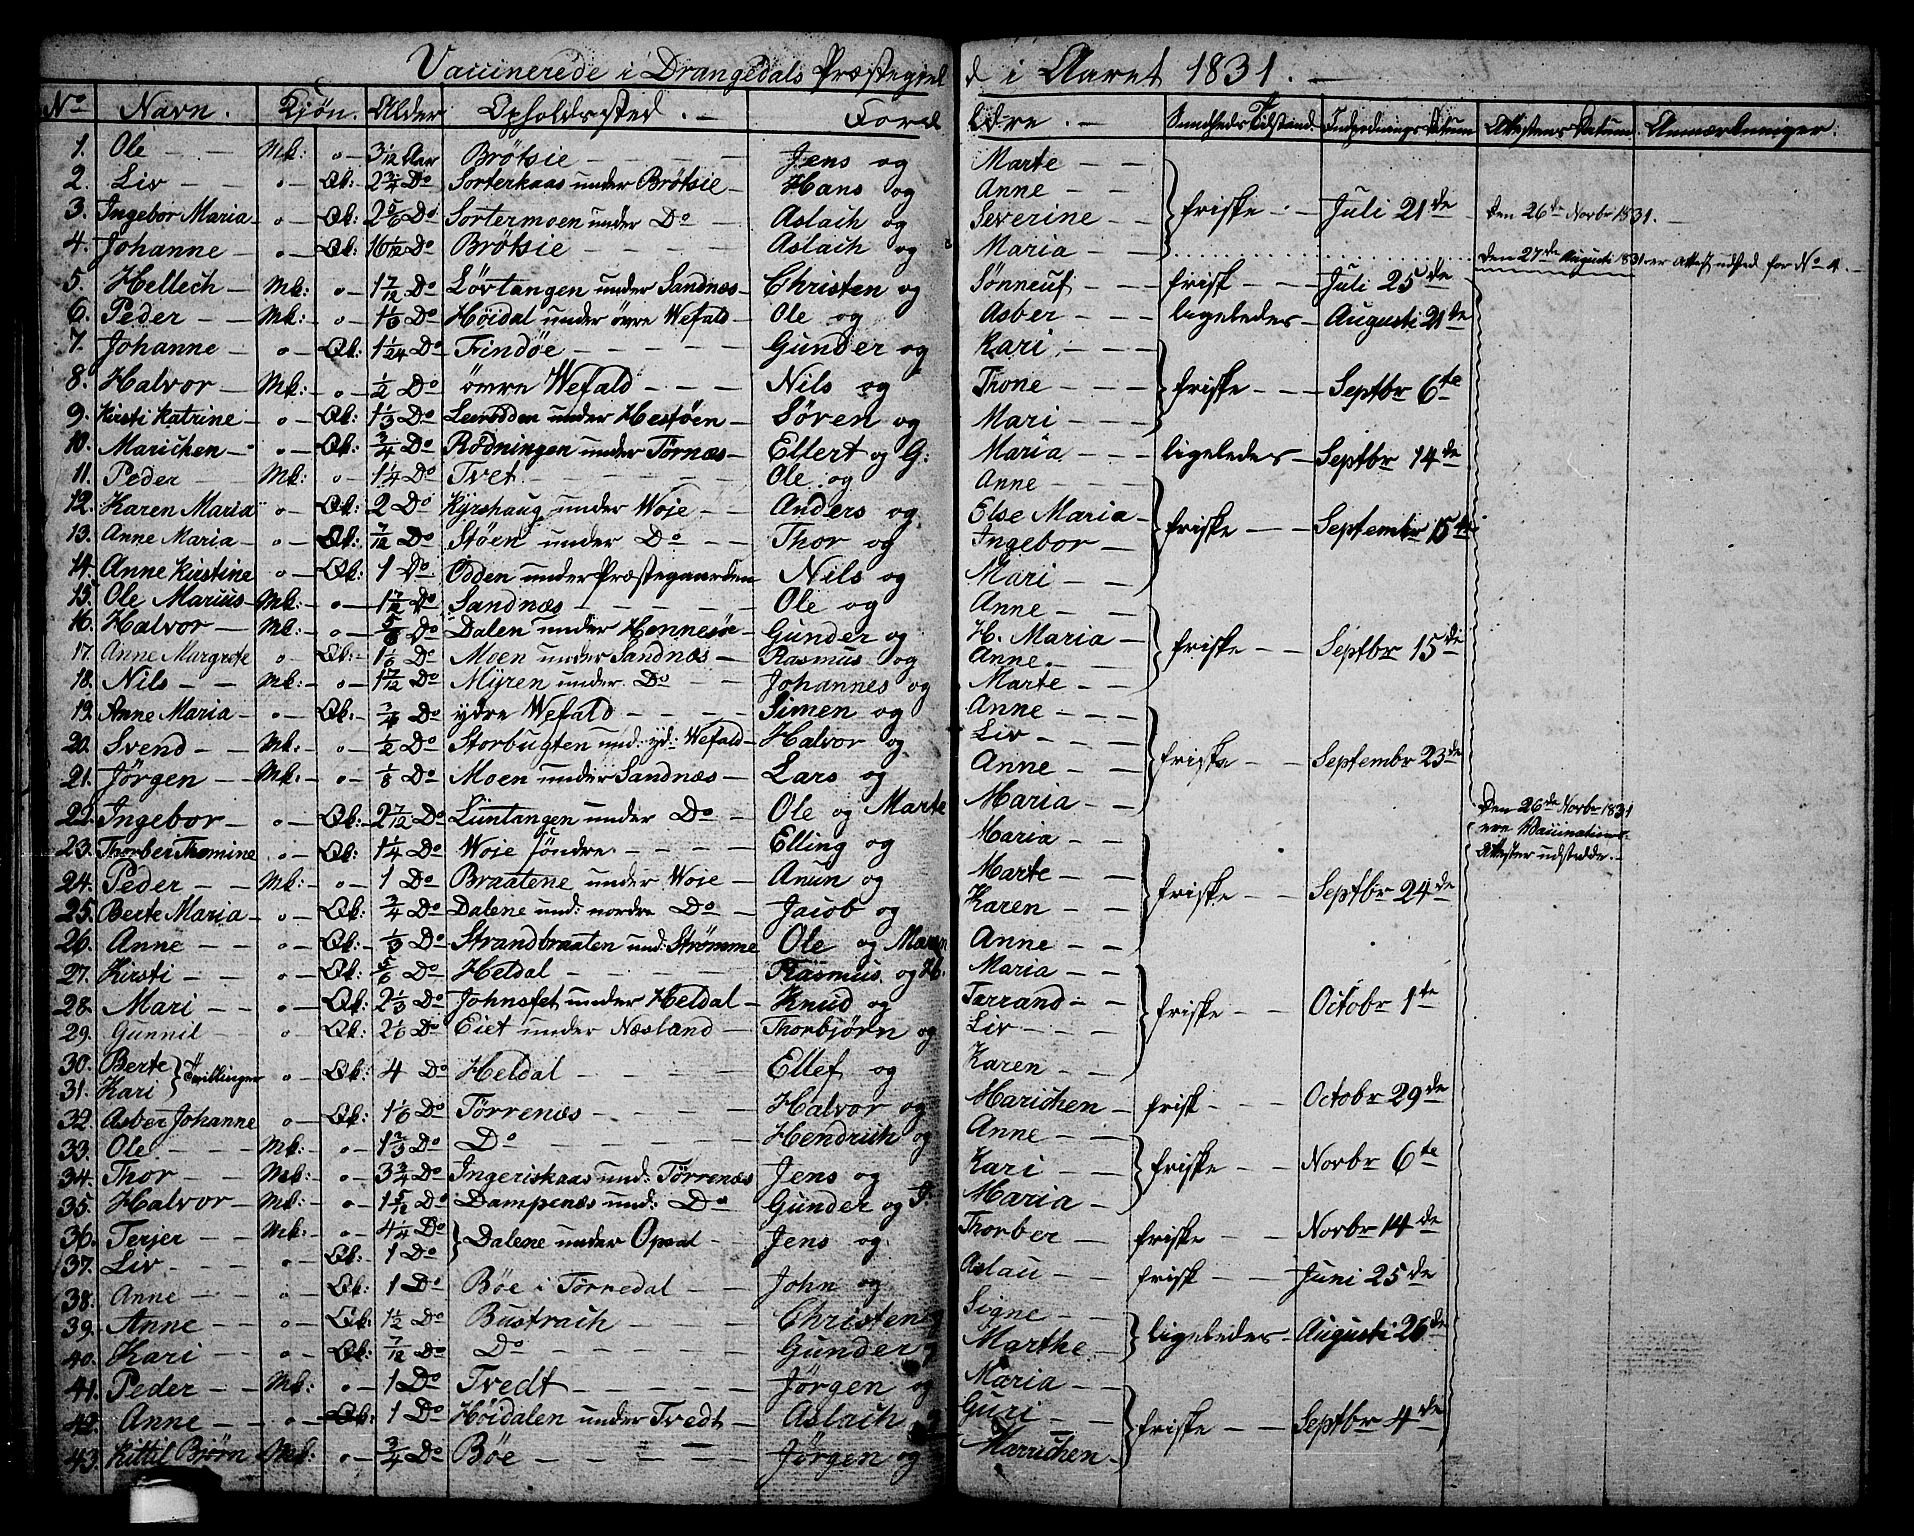 Vaccinerede i Drangedals Præstegield i Aaret 1831. —
No Navn. Kjøn. Alder Opholdssted. — Forældre. — Sundheds Tilstand. Indpodnings Datum Attestens Datum Anmærkninger.
1. Ole — Mk: o 3 1/12 Aar Brötsie — Jens og Marte
2. Liv — o Qk: 2 3/4 Do Sorterkaas under Brötsie — Hans og Anne
3. Ingebor Maria — o Qk: 2 5/6 Do Sortermoen under Do — Aslach og Severine — friske — Juli 21de — Den 26de Novbr 1831.
4. Johanne — o Qk: Do Brötsie — Aslach og Maria — Den 27de Augusti 1831 er Attest udsted for No 4.
5. Hellech — Mk: o 1 7/12 Do Lövtangen under Sandnæs — Christen og Sønneuf — frisk — Juli 25de
6. Peder — Mk: o 1 1/6 Do Høidal under øvre Wefald — Ole og Asber — ligeledes — Augusti 21de
7. Johanne — o Qk: 1 1/24 Do Findöe — Gunder og Kari
8. Halvor — Mk: o 1/2 Do øvre Wefald — Nils og Thone — friske — Septbr 6te
9. Kirsti Katrine o Qk: 1 1/3 Do under Hestøen — Søren og Mari
10. Marichen — o Qk: 3/4 Do Rödningen under Törnæs — Ellert og G: Maria — ligeledes — Septbr 14de
11. Peder — Mk: o 1 1/4 Do Tvet — Ole og Anne
12. Karen Maria o Qk: 2 Do Kyrshaug under Woje — Anders og Else Maria — friske — September 15de
13. Anne Maria — o Qk: 7/12 Do Støen under Do — Thor og Ingebor
14. Anne Kirstine o Qk: 1 Do Odden under Præstegaarden Nils og Mari
15. Ole Marius — Mk: o 1 7/12 Do Sandnæs — Ole og Anne
16. Halvor — Mk: o 5/6 Do Dalen under Hennesøe — Gunder og H. Maria — friske — Septbr 15de
17. Anne Margrete o Qk: 1 1/6 Do Moen under Sandnæs — Rasmus og Anne
18. Nils — Mk: o 1 7/12 Do Myren under Do — Johannes og Marte
19. Anne Maria — o Qk: 3/4 Do ydre Wefald — Simen og Anne
20. Svend — Mk: o 1/2 Do Storbugten und: yd: Wefald — Halvor og Liv
21. Jörgen — Mk: o 1/8 Do Moen under Sandnæs — Lars og Anne — friske — Septembr 23de
22. Ingebor — o Qk: 2 7/12 Do Luntangen under Do — Ole og Marte Maria — Den 26de Novbr 1831
23. Thorber Thomine o Qk: 1 1/4 Do Woje söndre — Elling og Maria — ere Vaccinations-
24. Peder — Mk: o 1 Do Braatene under Woje — Anun og Marte — Attester udstædde. —
25. Berte Maria — o Qk: 3/4 Do Dalene und: nordre Do — Jacob og Karen — friske — Septbr 24de
26. Anne — o Qk: 1/3 Do Strandbraaten und: Strömme Ole og Maren Anne
27. Kirsti — o Qk: 5/6 Do Heldal — Rasmus og H. Maria
28. Mari — o Qk: 2 1/3 Do Johnsfet under Heldal — Knud og Tarrand — friske — Octobr 1te
29. Gunnil o Qk: 2 1/6 Do Eiet under Næsland — Thorbjørn og Liv
30. Berte } Tvillinger o Qk: 4 Do Heldal — Ellef og Karen
31. Kari
32. Asber Johanne o Qk: 1 1/6 Do Törrenæs — Halvor og Marichen — friske — Octobr 29de
33. Ole — Mk: o 1 2/3 Do Do — Hendrich og Anne
34. Thor — Mk: o 3 3/4 Do Ingeriskaas und: Törrenæs Jens og Kari — friske — Novbr 6te
35. Halvor — Mk: o 1 5/12 Do Dampenæs und: Do Gunder og Maria
36. Terjer — Mk: o 4 1/4 Do } Dalene under Opsal — Jens og Thorber — friske — Novbr 14de
37. Liv — o Qk: 1 Do
38. Anne — o Qk: 1 Do Bøe i Törredal — John og Aslau — frisk — Juni 25de
39. Anne o Qk: 1 1/2 Do Bustrach — Christen og Signe
40. Kari — o Qk: 7/12 Do Do — Gunder og Marthe — ligeledes — Augusti 26de
41. Peder — Mk: o 1 Do Tvedt — Jörgen og Maria
42. Anne o Qk: 1 Do Høidalen under Tvedt — Aslach og Guri — friske — Septbr 4de
43. Kittil Bjørn Mk: o 3/4 Do Bøe — Jörgen og Marichen